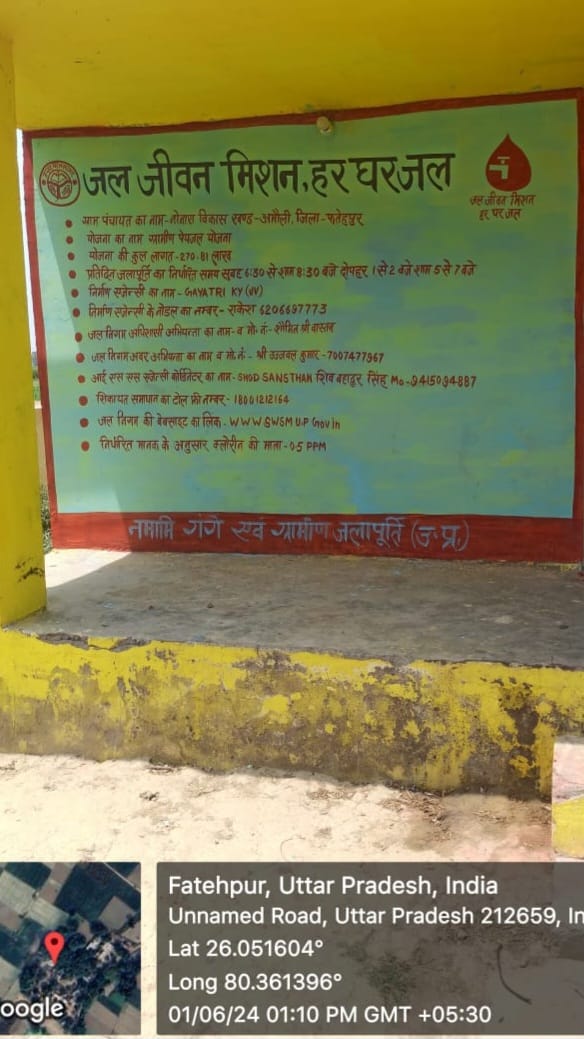 जल जीवन मिशन, हर घर जल
जल जीवन मिशन
हर घर जल
ग्राम पंचायत का नाम-नोनारा विकास खण्ड-अमौली, जिला-फतेहपुर
योजना का नाम ग्रामीण पेयजल योजना
योजना की कुल लागत-270-81 लाख
प्रतिदिन जलापूर्ति का निर्धारित समय सुबह 6:30 से शाम 8:30 बजे दोपहर 1 से 2 बजे शाम 5 से 7 बजे
निर्माण एजेन्सी का नाम - GAYATRI KY (JV)
निर्माण एजेन्सी के नोडल का नम्बर- राकेश 6206697773
जल निगम अधिशासी अभियन्ता का नाम - व मो. नं:- श्री वास्तव
जल निगम अवर अभियन्ता का नाम व मो. नं - श्री उज्जवल कुमार -7007477967
आई एस एस एजेन्सी कोर्डिनेटर का नाम - SHOD SANSTHAN शिव बहादुर सिंह Mo-9415094887
शिकायत समाधान का टोल फ्री नम्बर - 18001212164
जल निगम की वेबसाइट का लिंक - WWW.SWSM U.P Gov in
निर्धारित मानक के अनुसार क्लोरीन की मात्रा - 0.5 PPM
नमामि गंगे एवं ग्रामीण जलापूर्ति (उ. प्र.)
Fatehpur, Uttar Pradesh, India
Unnamed Road, Uttar Pradesh 212659, In
Lat 26.051604°
Long 80.361396°
01/06/24 01:10 PM GMT +05:30
oogle